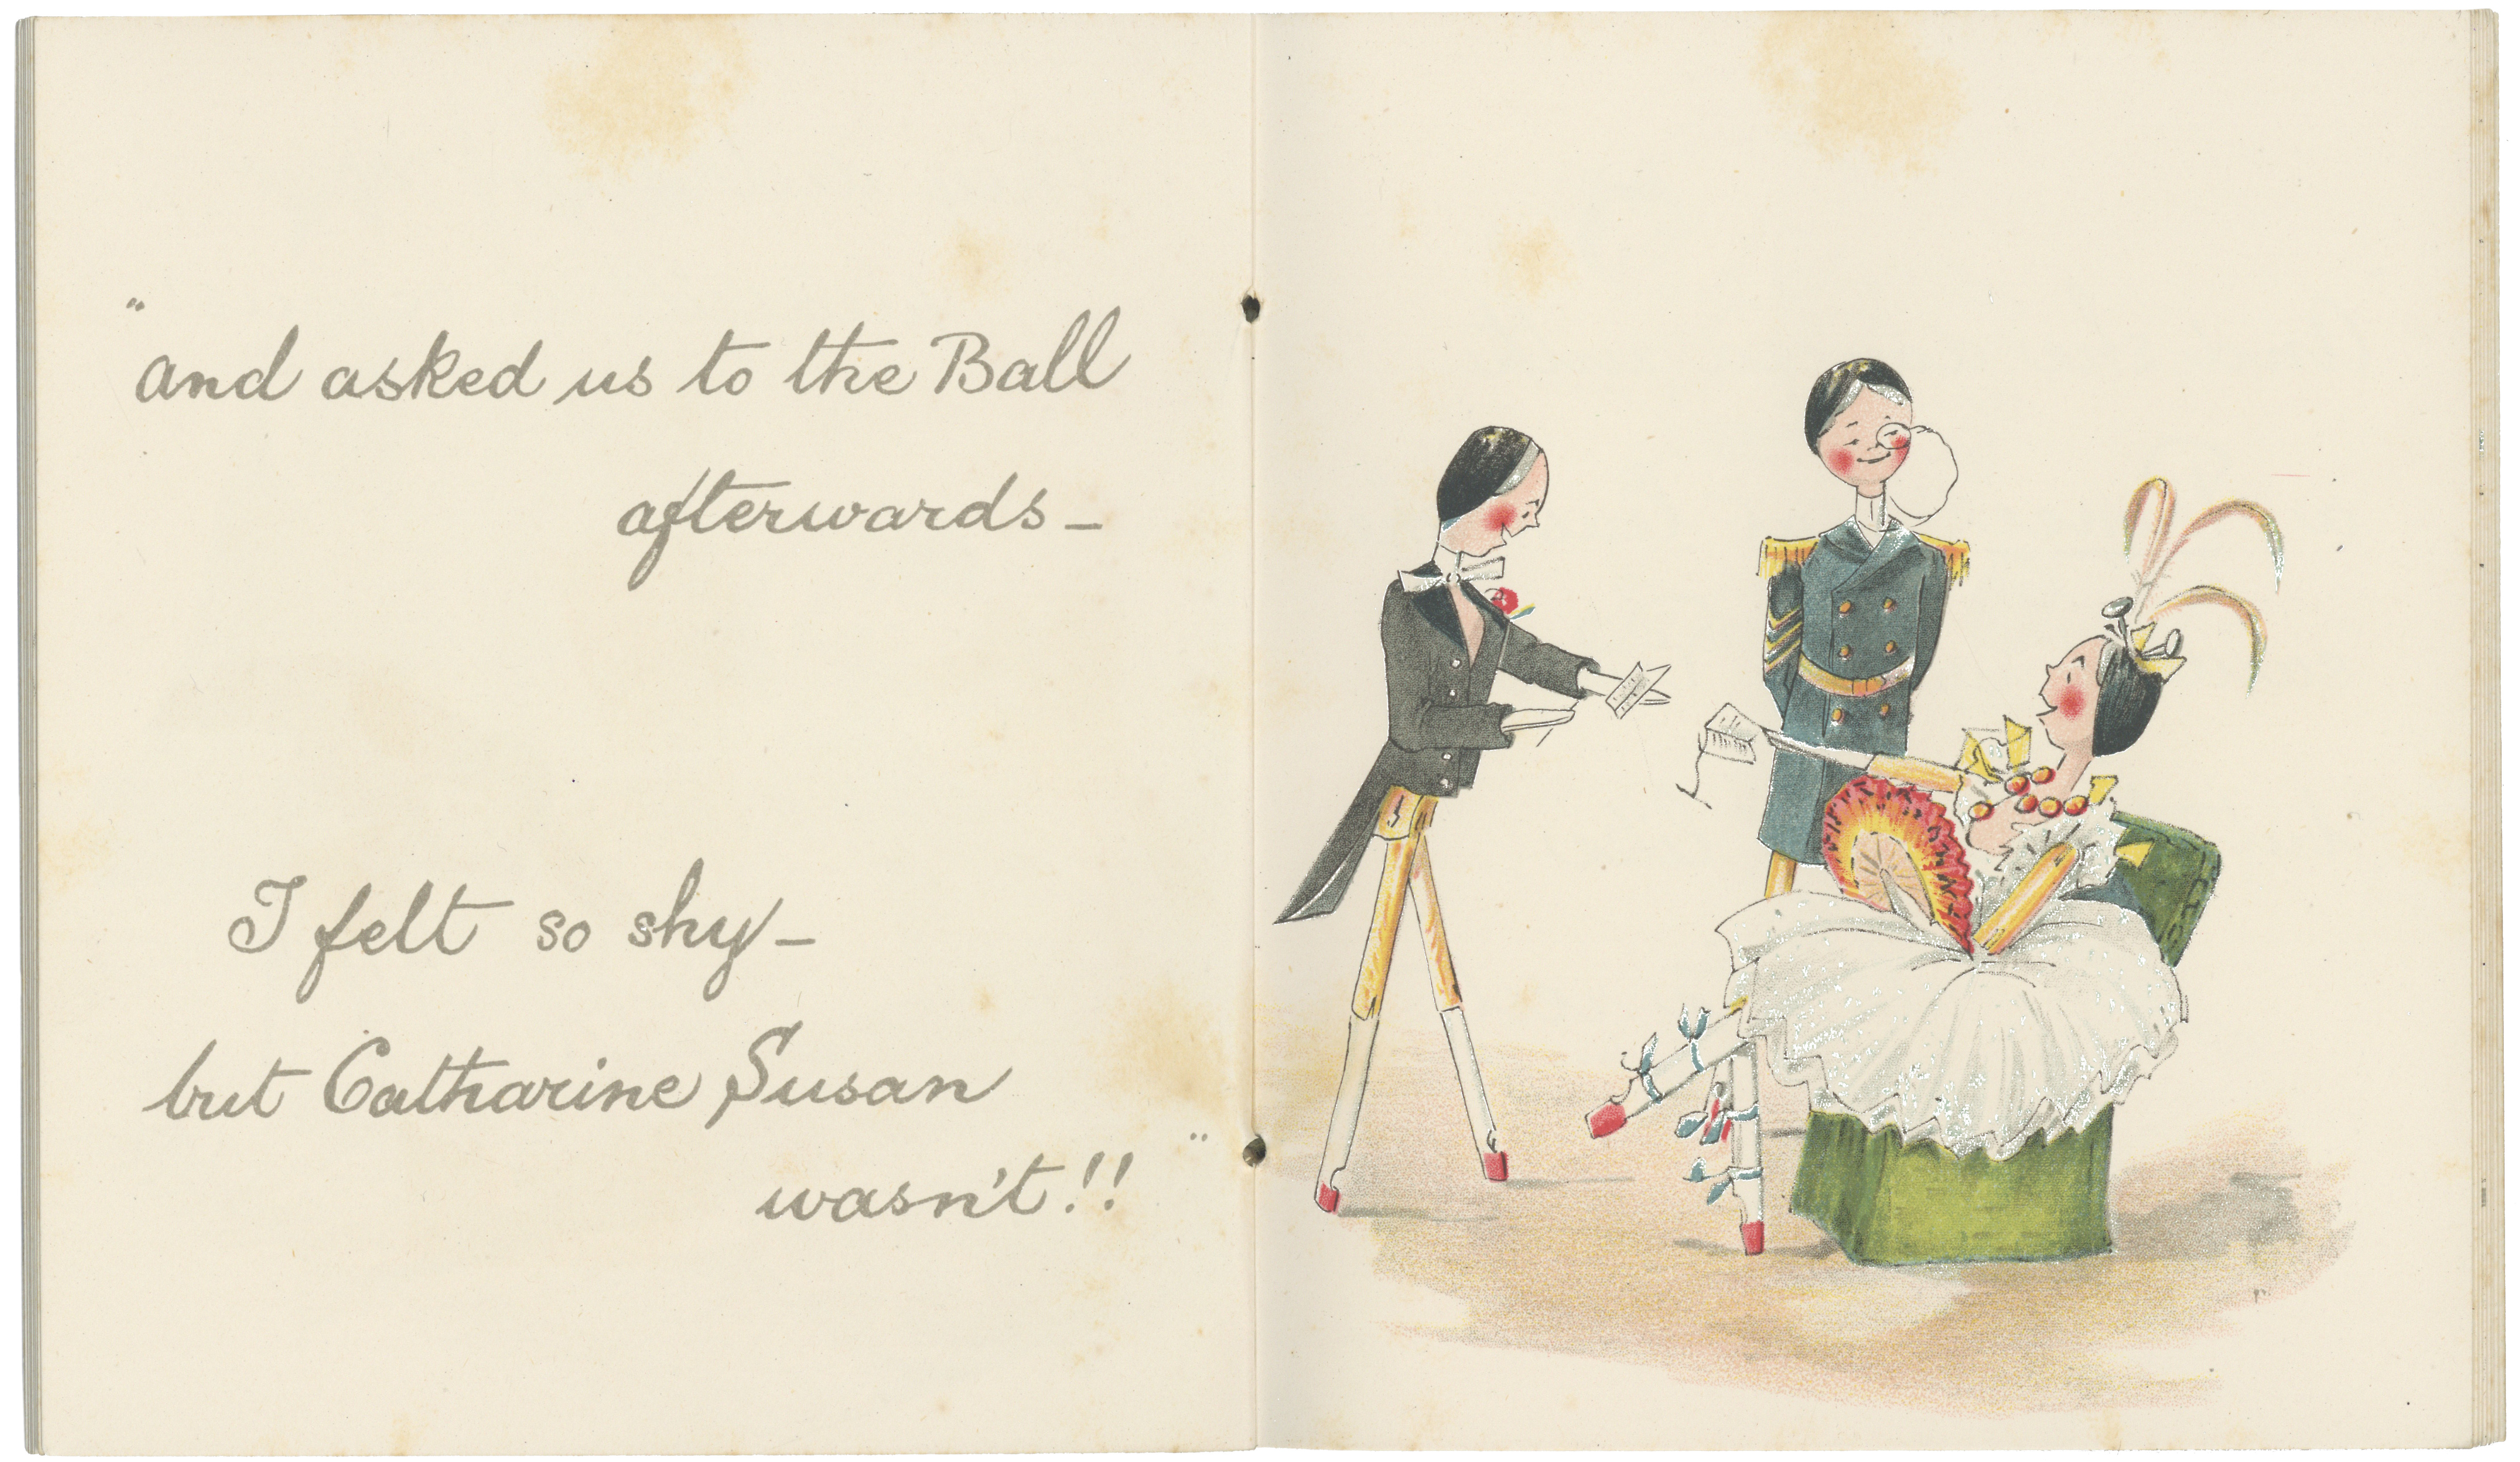 "and asked us to the Ball
afterwards—
I felt so shy—
but Catharine Susan
wasn't!!"